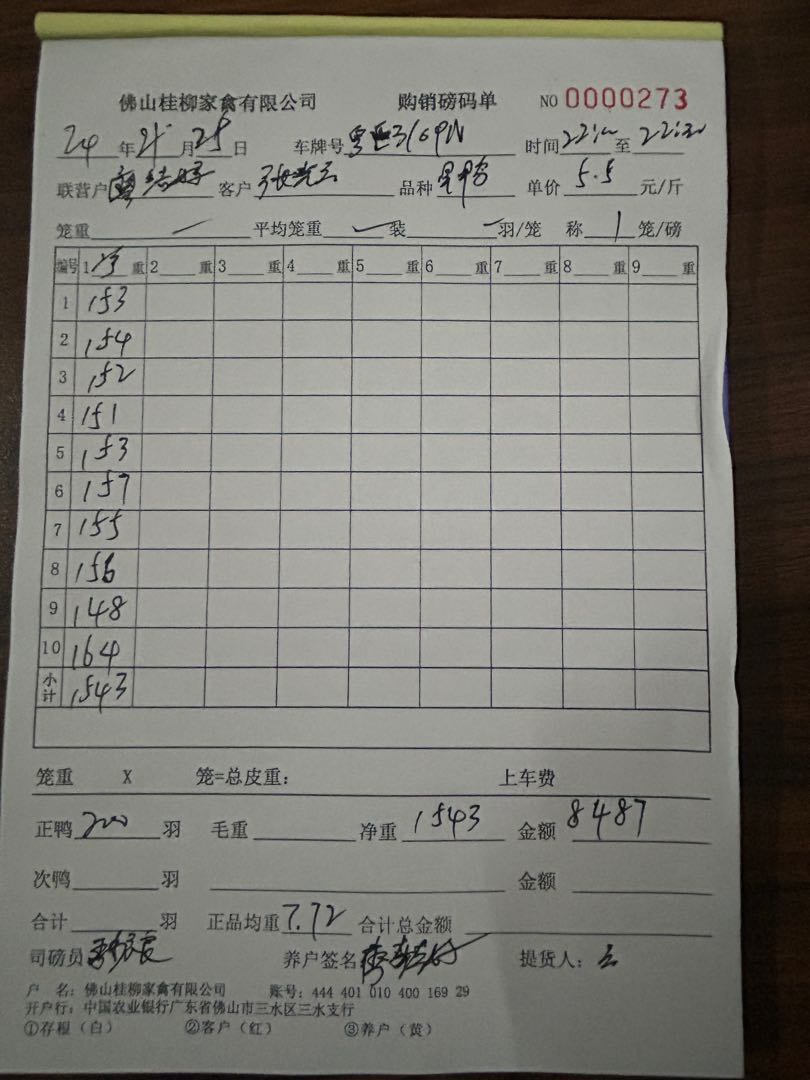 佛山桂柳家禽有限公司 购销磅码单 NO 0000273
24 年 月 25 日 车牌号 时间 至 22:30
联营户 客户 品种 单价 5.5 元/斤
笼重 一 平均笼重 一 装 一 羽/笼 称 1 笼/磅
编号 1 重 2 重 3 重 4 重 5 重 6 重 7 重 8 重 9 重
1 153
2 154
3 152
4 151
5 153
6 157
7 155
8 156
9 148
10 164
小计 1543
笼重 X 笼=总皮重: 上车费
正鸭 200 羽 毛重 净重 1543 金额 8487
次鸭 羽 金额
合计 羽 正品均重 7.72 合计总金额
司磅员 养户签名 提货人: 云
户 名: 佛山桂柳家禽有限公司 账号: 444 401 010 400 169 29
开户行: 中国农业银行广东省佛山市三水区三水支行
①存根(白) ②客户(红) ③养户(黄)